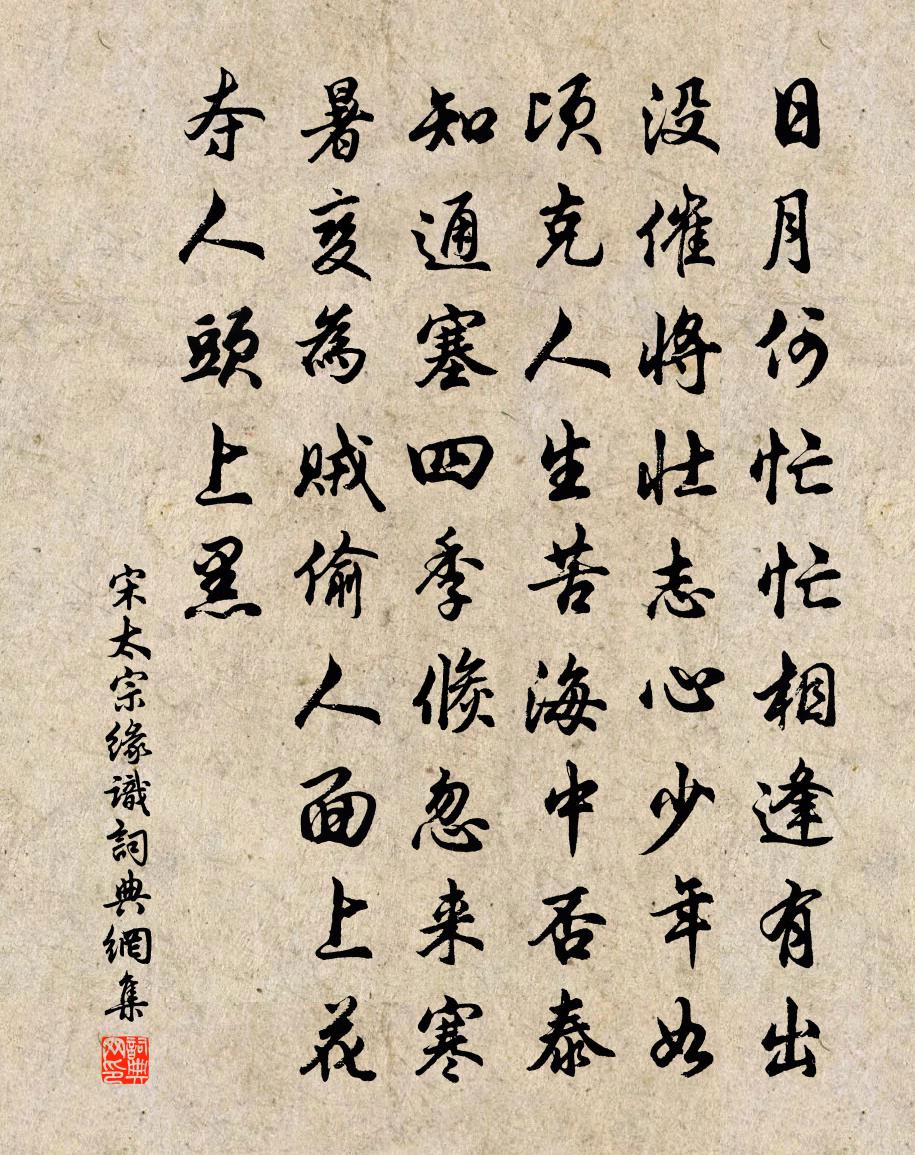 日月何忙忙相逢有出
没催將壮志心少年如
頃克人生苦海中否泰
知通塞四季倐忽来寒
暑变為贼偷人面上花
夺人頭上黑
宋太宗緣識詞典網集
詞典网印